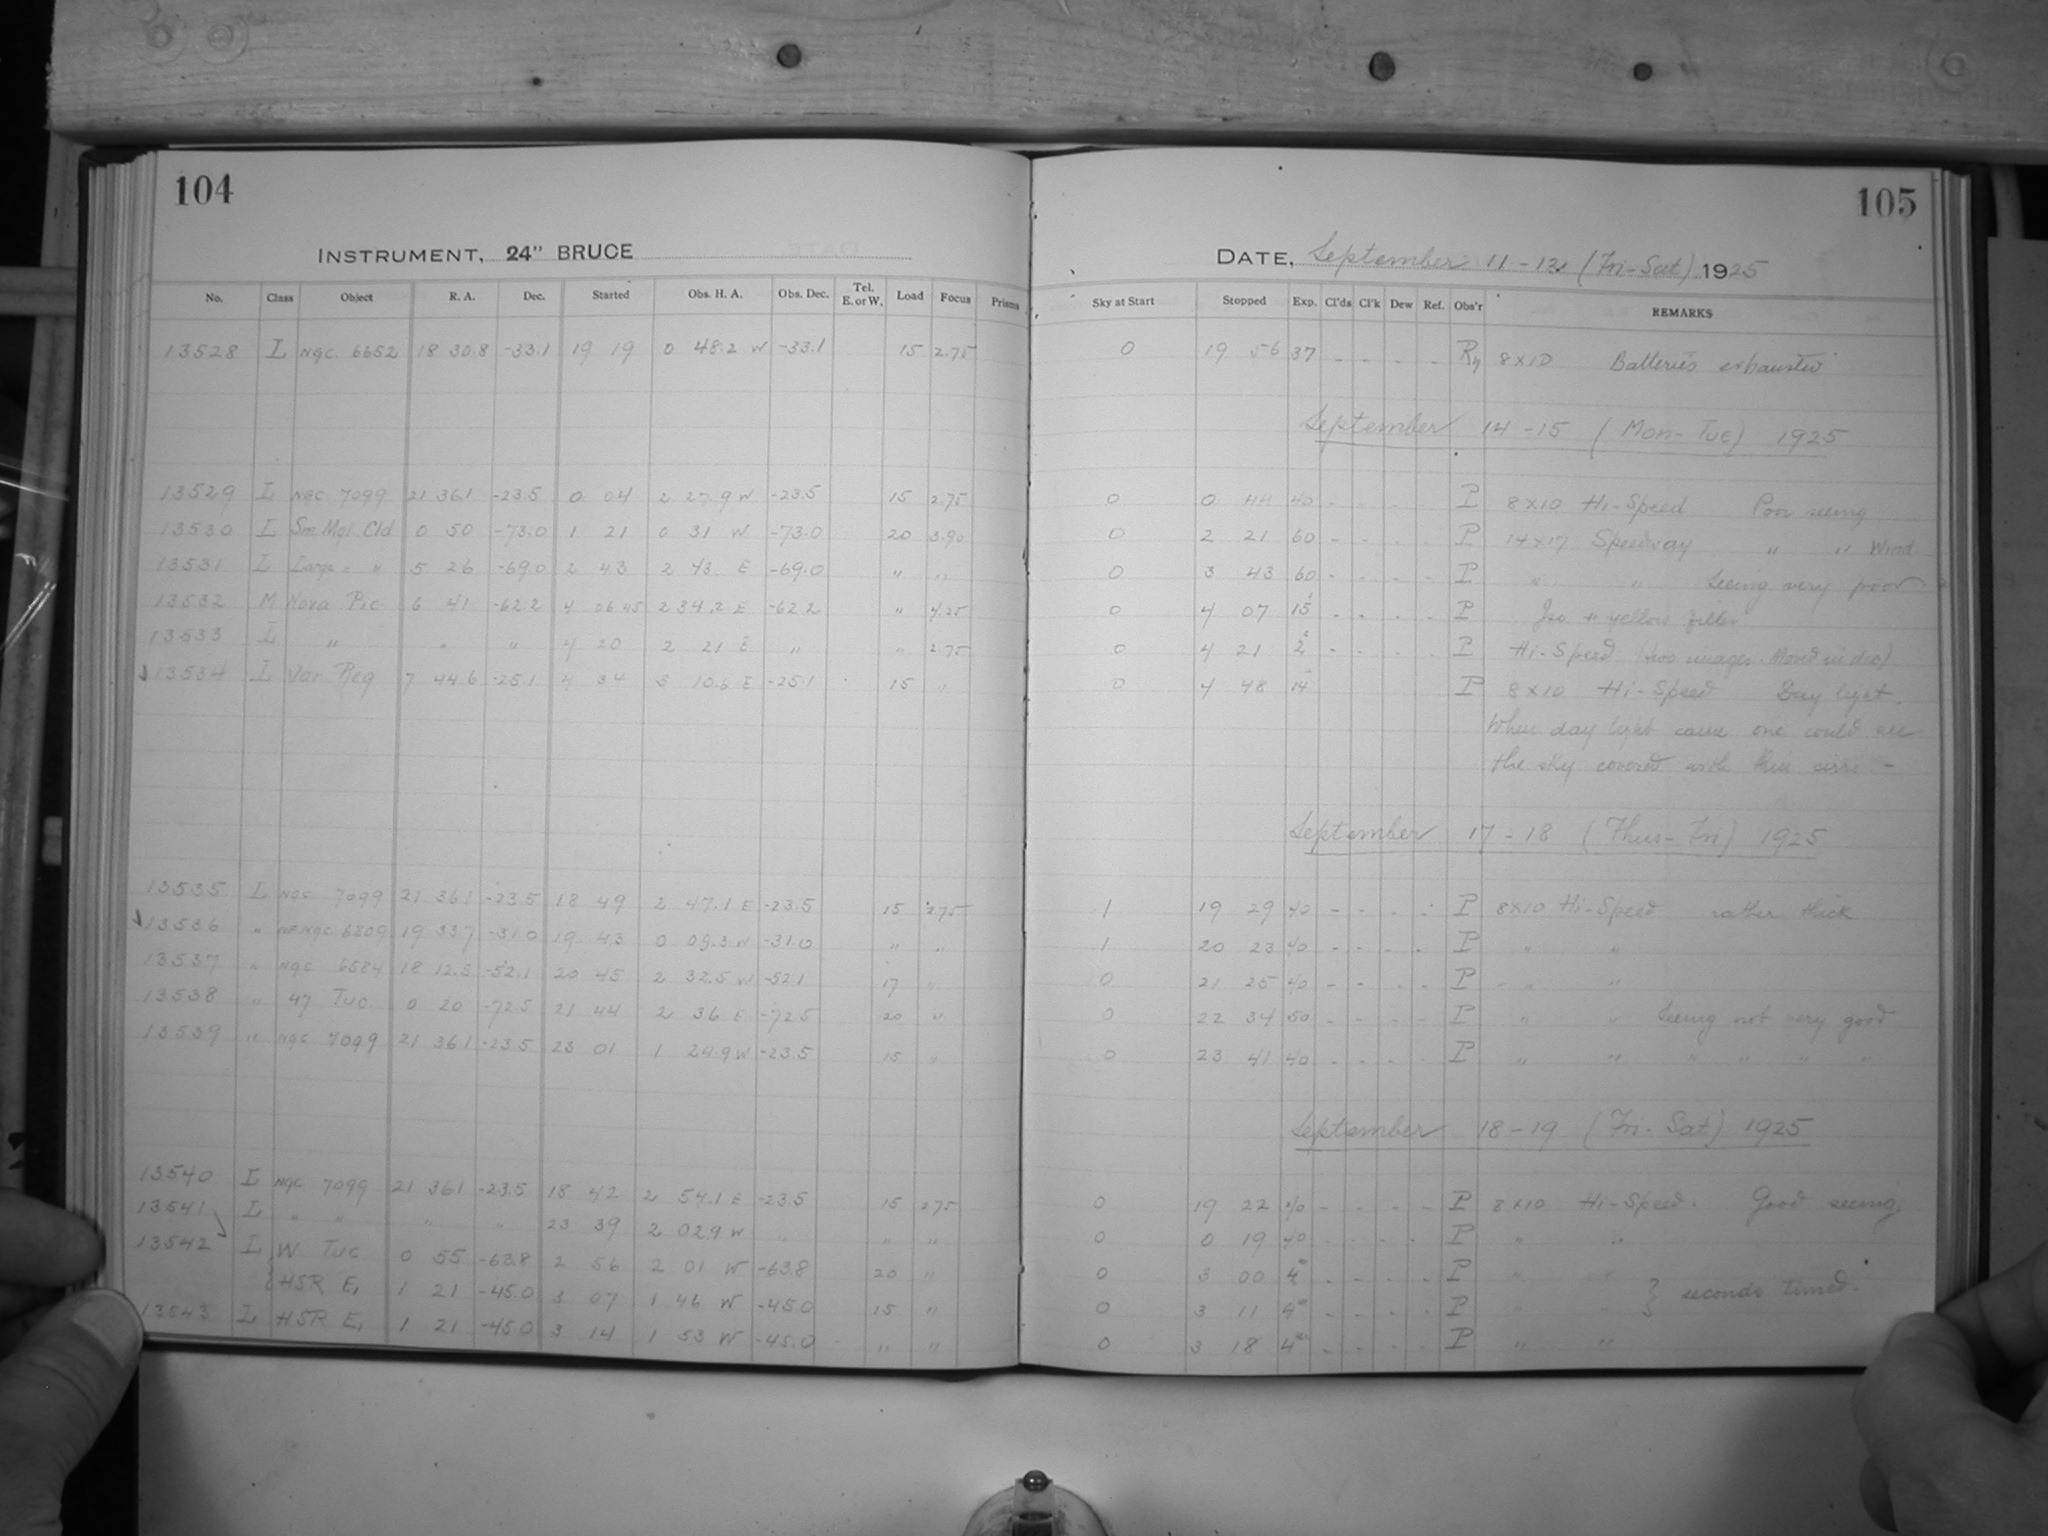 104
INSTRUMENT, 24" BRUCE
No. Class Object R. A. Dec. Started Obs. H. A. Obs. Dec. Tel. E. or W. Load Focus Prisms
13528 L NGC 6652 18 30.8 -33.1 19 19 0 48.2 W -33.1 15 2.75
13529 L NGC 7099 21 36.1 -23.5 0 04 2 27.9 W -23.5 15 2.75
13530 L Sm. Mgl. Cld 0 50 -73.0 1 21 0 31 W -73.0 20 3.90
13531 L Large " " 5 26 -69.0 2 43 2 43 E -69.0 " "
13532 M Nova Pic 6 41 -62.2 4 06 45 2 34.2 E -62.2 " 4.25
13533 L " " " 4 20 2 21 E " " 2.75
13534 L Var. Reg 7 44.6 -25.1 4 34 3 10.6 E -25.1 15 "
13535 L NGC 7099 21 36.1 -23.5 18 49 2 47.1 E -23.5 15 2.75
13536 " NGC 6809 19 33.7 -31.0 19 43 0 09.3 W -31.0 " "
13537 " NGC 6584 18 12.5 -52.1 20 45 2 32.5 W -52.1 17 "
13538 " 47 Tuc. 0 20 -72.5 21 44 2 36 E -72.5 20 "
13539 " NGC 7099 21 36.1 -23.5 23 01 1 24.9 W -23.5 15 "
13540 L NGC 7099 21 36.1 -23.5 18 42 2 54.1 E -23.5 15 2.75
13541 L " " " " 23 39 2 02.9 W " " "
13542 L W Tuc 0 55 -63.8 2 56 2 01 W -63.8 20 "
HSR E, 1 21 -45.0 3 07 1 46 W -45.0 15 "
13543 L HSR E, 1 21 -45.0 3 14 1 53 W -45.0 " "
105
DATE, September 11-12 (Fri-Sat) 1925
Sky at Start Stopped Exp. Cl'ds Cl'k Dew Ref. Obs'r REMARKS
0 19 56 37 - - - - Ry 8x10 Batteries exhausted
September 14-15 (Mon-Tue) 1925
0 0 44 40 - - - - P 8x10 Hi-Speed Poor seeing
0 2 21 60 - - - - P 14x17 Speedway " " Wind
0 3 43 60 - - - - P " " Seeing very poor
0 4 07 15 - - - - P Iso + yellow filter
0 4 21 2 - - - - P Hi-Speed (two images. Moved in dec)
0 4 48 14 P 8x10 Hi-Speed Day light.
When day light came one could see
the sky covered with thin cirri -
September 17-18 (Thus-Fri) 1925
1 19 29 40 - - - - P 8x10 Hi-Speed rather thick
1 20 23 40 - - - - P " "
0 21 25 40 - - - - P " "
0 22 34 50 - - - - P " " Seeing not very good
0 23 41 40 - - - - P " " " " " "
September 18-19 (Fri-Sat) 1925
0 19 22 40 - - - - P 8x10 Hi-Speed. Good seeing
0 0 19 40 - - - - P " "
0 3 00 4m - - - - P " "
0 3 11 4m - - - - P " " } seconds timed.
0 3 18 4m - - - - P " "